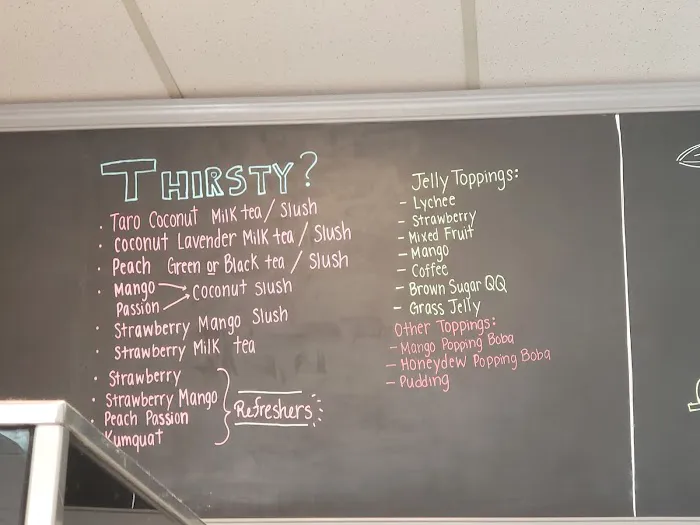 THIRSTY?
· Taro Coconut Milk tea / Slush
· Coconut Lavender Milk tea / Slush
· Peach Green or Black tea / Slush
· Mango
Passion → Coconut Slush
· Strawberry Mango Slush
· Strawberry Milk tea
· Strawberry
· Strawberry Mango
Peach Passion
Kumquat
Refreshers
Jelly Toppings:
- Lychee
- Strawberry
- Mixed Fruit
- Mango
- Coffee
- Brown Sugar QQ
- Grass Jelly
Other Toppings:
- Mango Popping Boba
- Honeydew Popping Boba
- Pudding